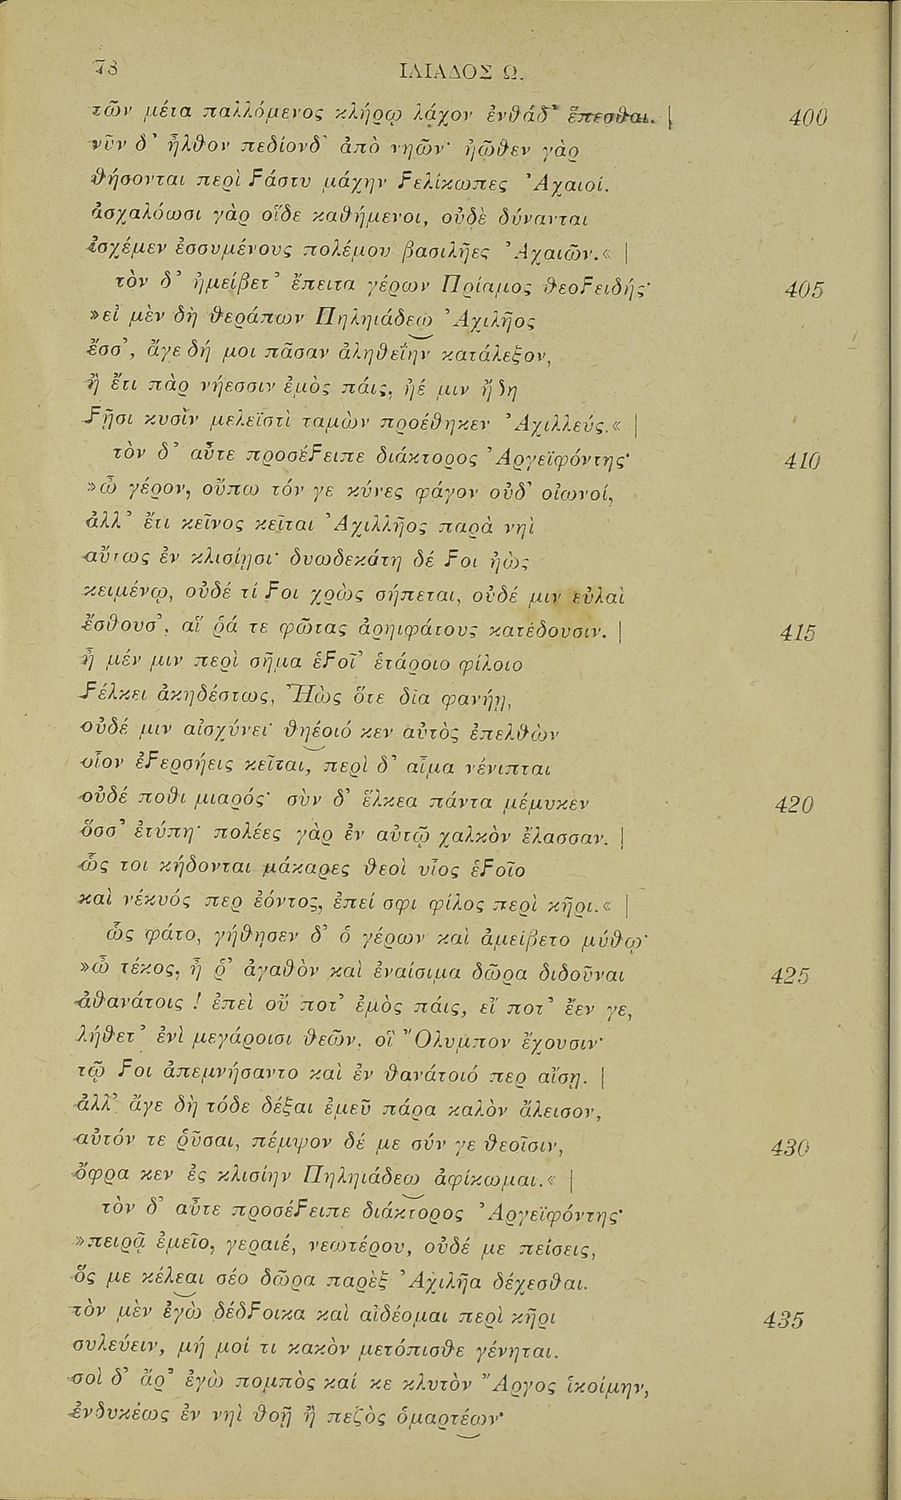 78 ΙΛΙΑΔΟΣ Ω.
τῶν μέτα παλλόμενος κλήρῳ λάχον ἐνθάδ᾽ ἕπεσθαι. | 400
νῦν δ᾽ ἦλθον πεδίονδ᾽ ἀπὸ νηῶν· ἠῶθεν γὰρ
θήσονται περὶ Ϝάστυ μάχην Ϝελίκωπες Ἀχαιοί.
ἀσχαλόωσι γὰρ οἵδε καθήμενοι, οὐδὲ δύνανται
ἰσχέμεν ἐσσυμένους πολέμου βασιλῆες Ἀχαιῶν.« |
τὸν δ᾽ ἠμείβετ᾽ ἔπειτα γέρων Πρίαμος θεοϜειδής· 405
»εἰ μὲν δὴ θεράπων Πηληιάδεω Ἀχιλῆος
ἔσσ᾽, ἄγε δή μοι πᾶσαν ἀληθείην κατάλεξον,
ἢ ἔτι πὰρ νήεσσιν ἐμὸς πάις, ἠέ μιν ἤδη
Ϝῇσι κυσὶν μελεϊστὶ ταμὼν προέθηκεν Ἀχιλλεύς.« |
τὸν δ᾽ αὖτε προσέϜειπε διάκτορος Ἀργεϊφόντης· 410
»ὦ γέρον, οὔπω τόν γε κύνες φάγον οὐδ᾽ οἰωνοί,
ἀλλ᾽ ἔτι κεῖνος κεῖται Ἀχιλλῆος παρὰ νηὶ
αὔτως ἐν κλισίῃσι· δυωδεκάτη δέ Ϝοι ἠὼς
κειμένῳ, οὐδέ τί Ϝοι χρὼς σήπεται, οὐδέ μιν εὐλαὶ
ἔσθουσ᾽, αἵ ῥά τε φῶτας ἀρηιφάτους κατέδουσιν. | 415
ἦ μέν μιν περὶ σῆμα ἑϜοῖ᾽ ἑτάροιο φίλοιο
Ϝέλκει ἀκηδέστως, Ἠὼς ὅτε δῖα φανήῃ,
οὐδέ μιν αἰσχύνει· θηέοιό κεν αὐτὸς ἐπελθὼν
οἷον ἐϜερσήεις κεῖται, περὶ δ᾽ αἷμα νένιπται
οὐδέ ποθι μιαρός· σὺν δ᾽ ἕλκεα πάντα μέμυκεν 420
ὅσσ᾽ ἐτύπη· πολέες γὰρ ἐν αὐτῷ χαλκὸν ἔλασσαν. |
ὥς τοι κήδονται μάκαρες θεοὶ υἷος ἑϜοῖο
καὶ νέκυός περ ἐόντος, ἐπεί σφι φίλος περὶ κῆρι.« |
ὣς φάτο, γήθησεν δ᾽ ὁ γέρων καὶ ἀμείβετο μύθῳ·
»ὦ τέκος, ἦ ῥ᾽ ἀγαθὸν καὶ ἐναίσιμα δῶρα διδοῦναι 425
ἀθανάτοις ! ἐπεὶ οὔ ποτ᾽ ἐμὸς πάις, εἴ ποτ᾽ ἔεν γε,
λήθετ᾽ ἐνὶ μεγάροισι θεῶν, οἳ Ὄλυμπον ἔχουσιν·
τῷ Ϝοι ἀπεμνήσαντο καὶ ἐν θανάτοιό περ αἴσῃ. |
ἀλλ᾽ ἄγε δὴ τόδε δέξαι ἐμεῦ πάρα καλὸν ἄλεισον,
αὐτόν τε ῥῦσαι, πέμψον δέ με σύν γε θεοῖσιν, 430
ὄφρα κεν ἐς κλισίην Πηληιάδεω ἀφίκωμαι.« |
τὸν δ᾽ αὖτε προσέϜειπε διάκτορος Ἀργεϊφόντης·
»πειρᾷ ἐμεῖο, γεραιέ, νεωτέρου, οὐδέ με πείσεις,
ὅς με κέλεαι σέο δῶρα παρὲξ Ἀχιλῆα δέχεσθαι.
τὸν μὲν ἐγὼ δέδϜοικα καὶ αἰδέομαι περὶ κῆρι 435
συλεύειν, μή μοί τι κακὸν μετόπισθε γένηται.
σοὶ δ᾽ ἂρ᾽ ἐγὼ πομπὸς καί κε κλυτὸν Ἄργος ἱκοίμην,
ἐνδυκέως ἐν νηὶ θοῇ ἢ πεζὸς ὁμαρτέων·